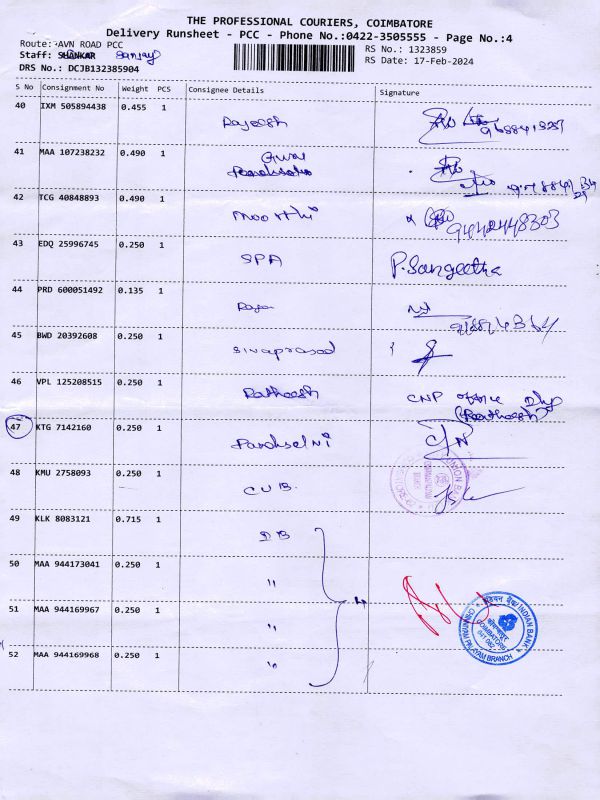 THE PROFESSIONAL COURIERS, COIMBATORE
Delivery Runsheet - PCC - Phone No.:0422-3505555 - Page No.:4
Route: AVN ROAD PCC RS No.: 1323859
Staff: SHANKAR Sanjay RS Date: 17-Feb-2024
DRS No.: DCJB132385904
S No Consignment No Weight PCS Consignee Details Signature
40 IXM 505894438 0.455 1 Rajeesh
41 MAA 107238232 0.490 1
42 TCG 40848893 0.490 1 Moorthi 9442448303
43 EDQ 25996745 0.250 1 SPA P. Sangeetha
44 PRD 600051492 0.135 1 Rajan
45 BWD 20392608 0.250 1 Sivaprasad
46 VPL 125208515 0.250 1 Ratheesh CNP office
(Ratheesh)
47 KTG 7142160 0.250 1
48 KMU 2758093 0.250 1 CUB
49 KLK 8083121 0.715 1 IB
50 MAA 944173041 0.250 1 "
51 MAA 944169967 0.250 1 "
52 MAA 944169968 0.250 1 "
इंडियन बैंक/ INDIAN BANK
कोयम्बतूर
COIMBATORE
641 062
CHINNIYAMPALAYAM BRANCH